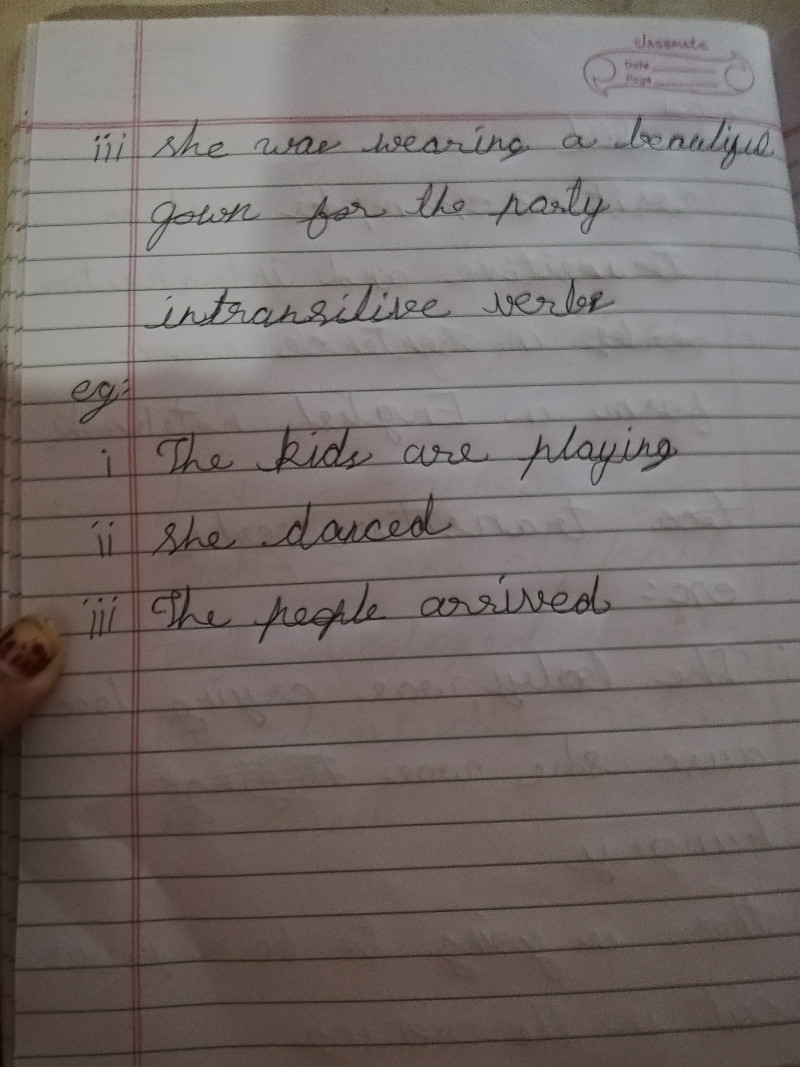 classmate
Date
Page
iii she was wearing a beautiful
gown for the party
intransitive verbs
eg:
i The kids are playing
ii she danced
iii The people arrived